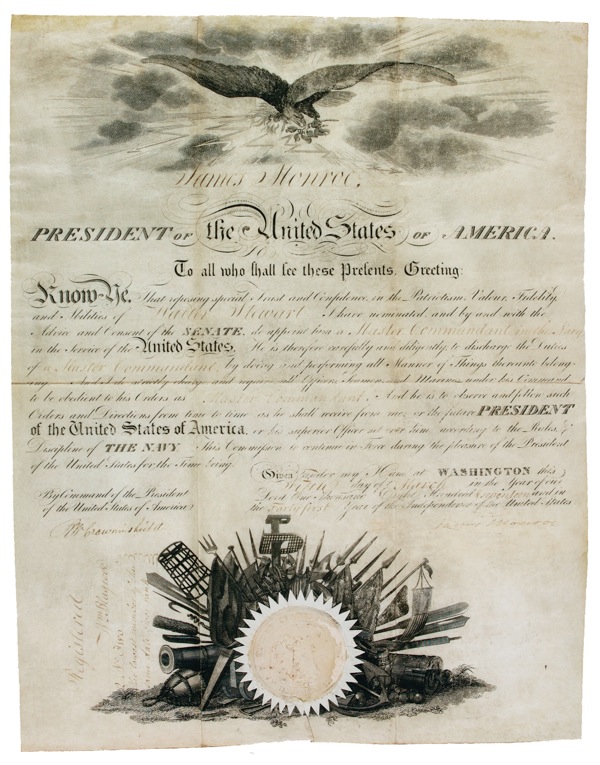 James Monroe,
PRESIDENT OF the United States OF AMERICA.
To all who shall see these Presents, Greeting:
Know-Ye, That reposing special Trust and Confidence in the Patriotism, Valour, Fidelity,
and Abilities of Stewart I have nominated, and by and with the
Advice and Consent of the SENATE, do appoint him a Master Commandant in the Navy
in the Service of the United States. He is therefore carefully and diligently to discharge the Duties
of a Master Commandant by doing and performing all Manner of Things thereunto belong-
ing. And I do strictly charge and require all Officers, Seamen and Marines under his Command
to be obedient to his Orders as Master Commandant. And he is to observe and follow such
Orders and Directions from time to time as he shall receive from me, or the future PRESIDENT
of the United States of America, or his superior Officer set over him, according to the Rules, &
Discipline of THE NAVY. This Commission to continue in Force during the pleasure of the President
of the United States for the Time being.
Given under my Hand at WASHINGTON this
day of March in the Year of our
Lord One Thousand Eight Hundred & seventeen and in
the Forty first Year of the Independence of the United States
By Command of the President
of the United States of America
James Monroe
BW Crowninshield
Registered